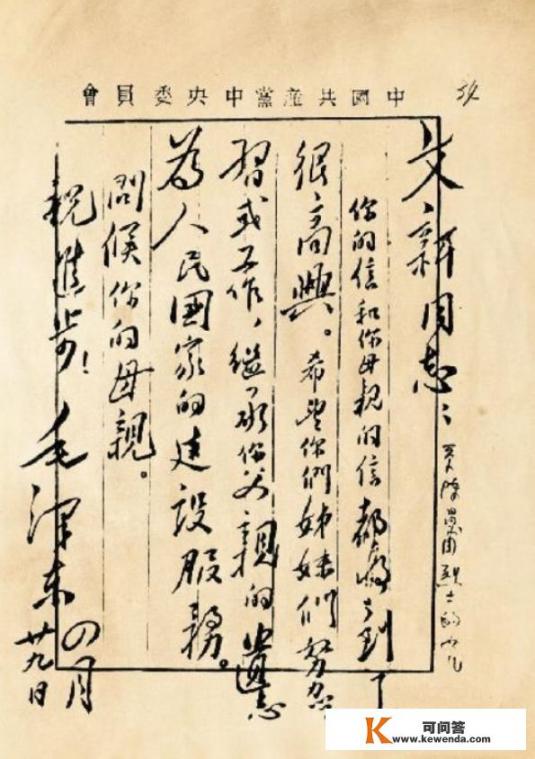 中國共產黨中央委員會
文新同志：
你的信和你母親的信都收到了
很高興。希望你們姊妹們努力學
習或工作，繼承你父親的遺志
為人民國家的建設服務。
問候你的母親。
祝進步！
毛澤東
四月
廿九日
烈士的女兒
可问答
www.kewenda.com